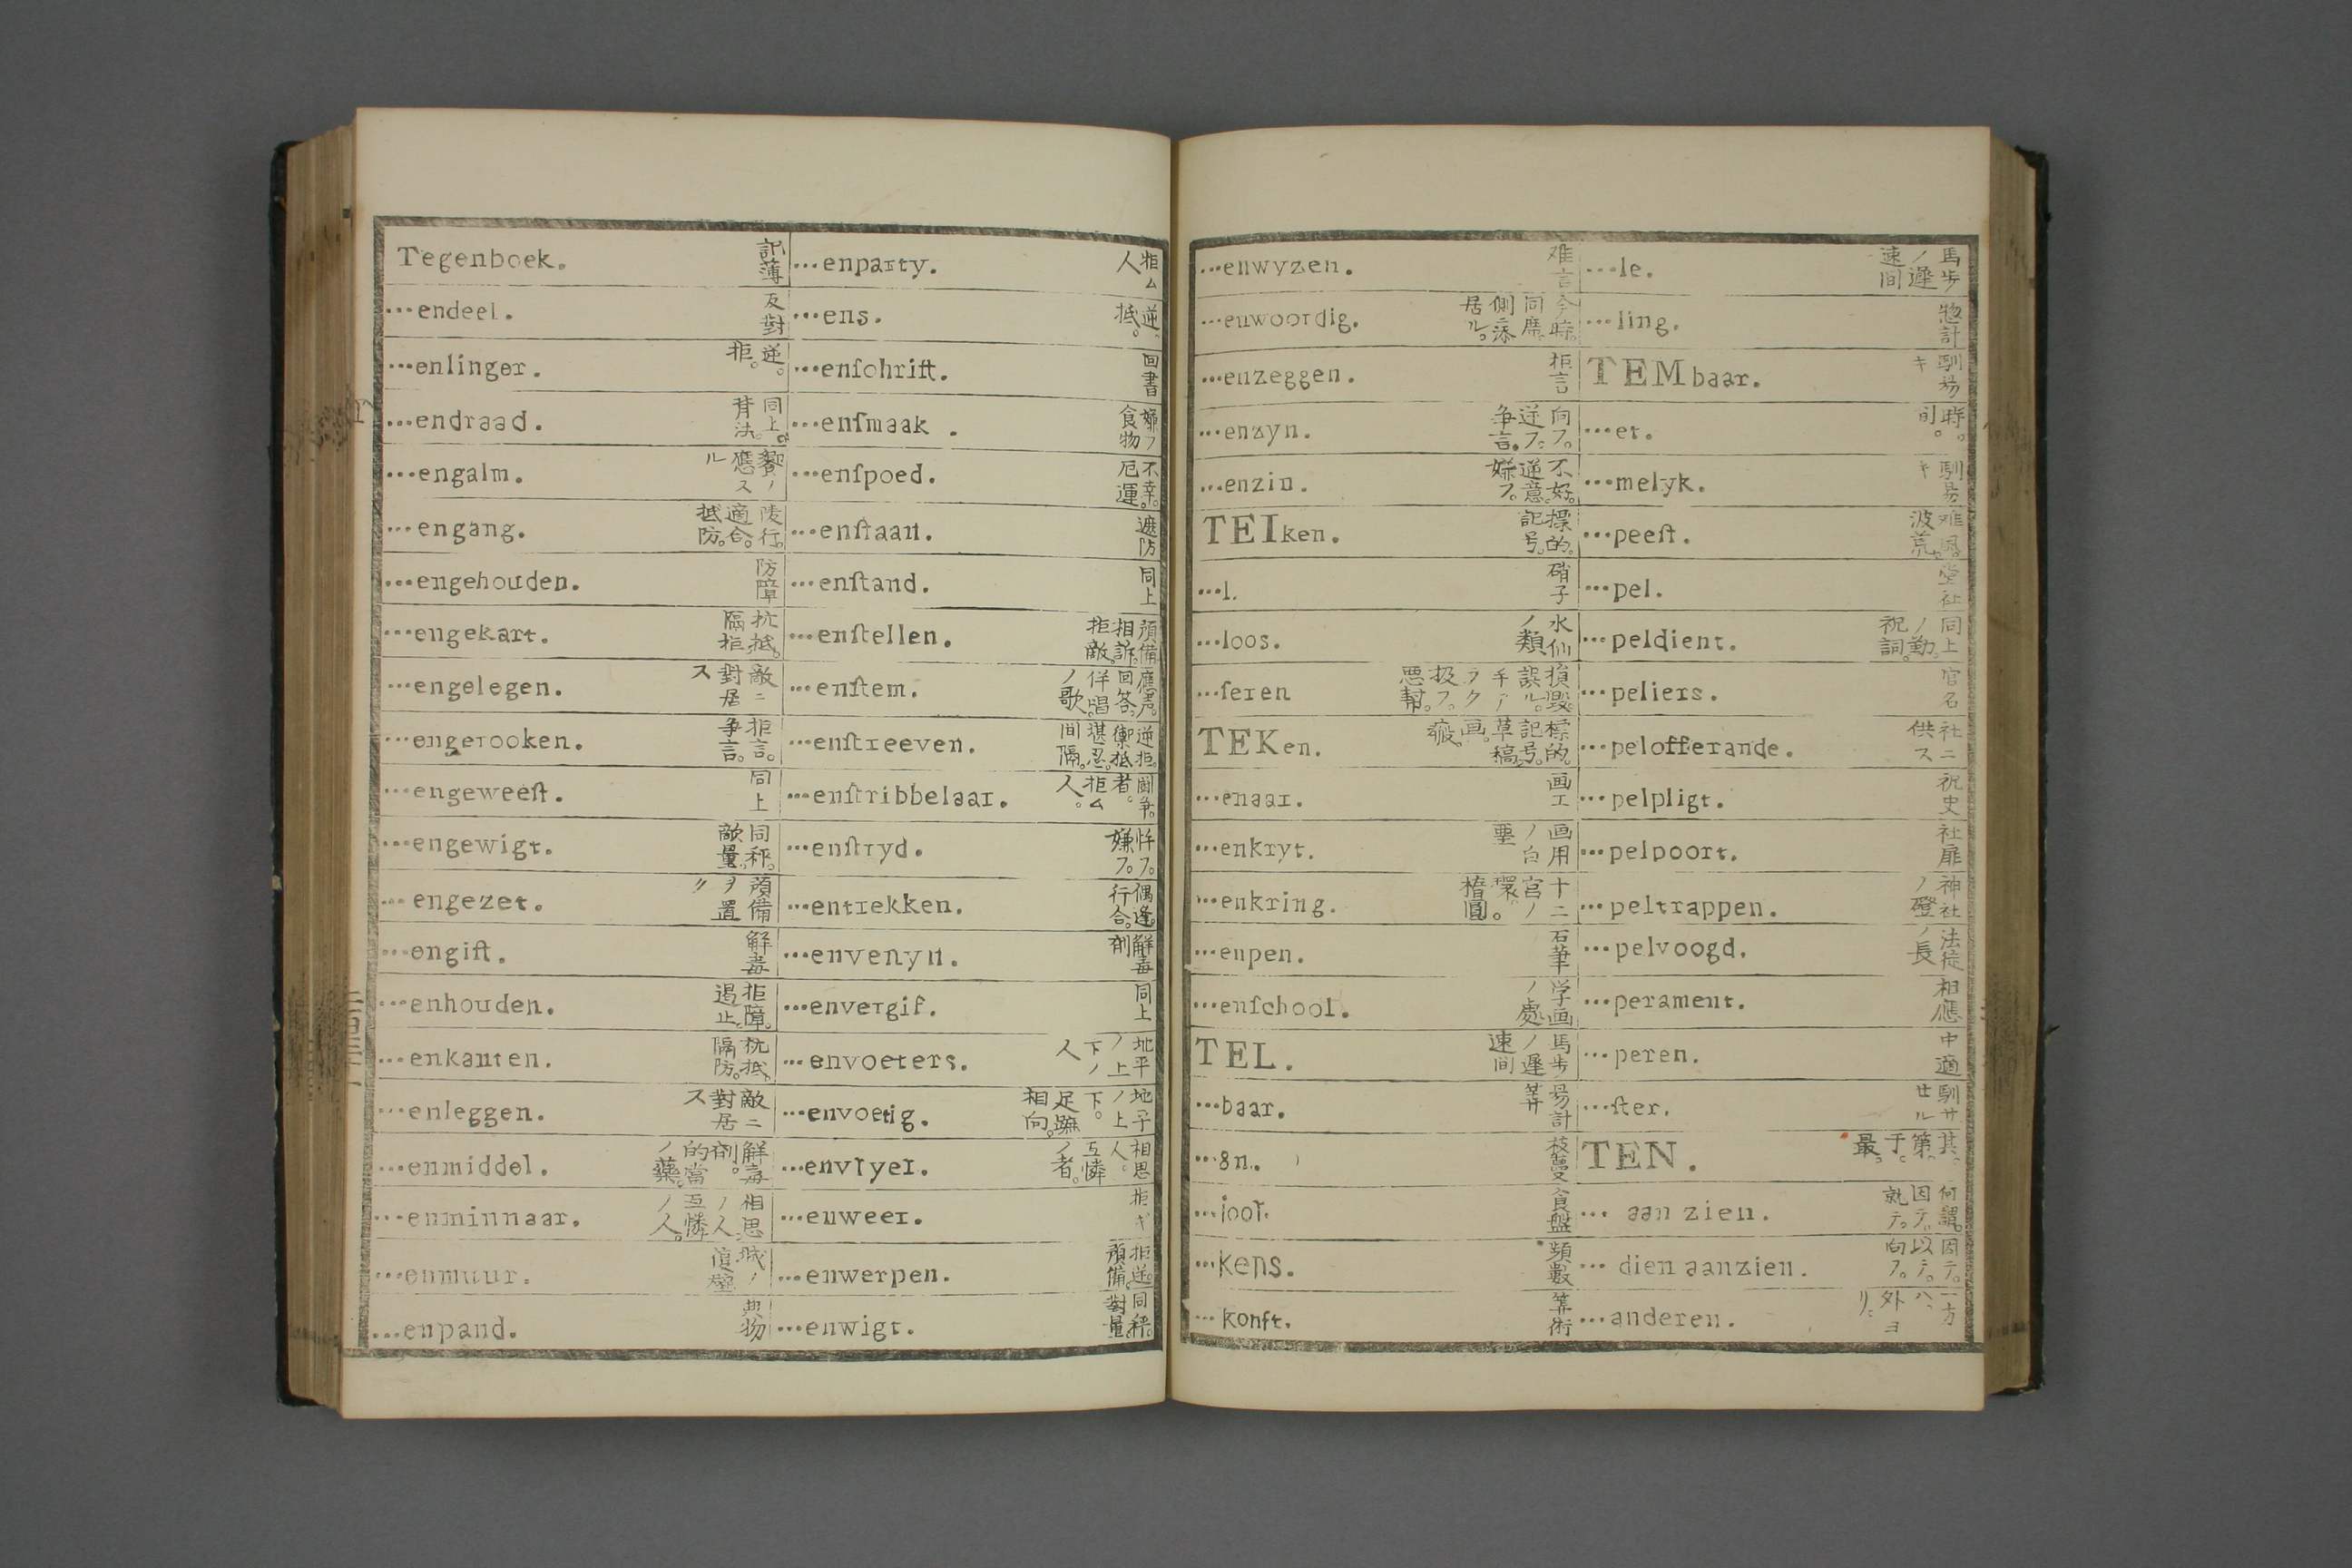 Tegenboek. 記薄
...endeel. 反對
...enlinger. 逆。拒。
...endraad. 同上。背法。
...engalm. 響ノ應スル
...engang. 陵行。適合。抵防。
...engehouden. 防障
...engekart. 抗抵。隔拒
...engelegen. 敵ニ對居ス
...engerooken. 拒言。争言。
...engeweeſt. 同上
...engewigt. 同秤。敵量。
...engezet. 預備ヲ置ク
...engift. 解毒
...enhouden. 拒障。遏止。
...enkanten. 抗抵。隔防。
...enleggen. 敵ニ對居ス
...enmiddel. 解毒剤。的當ノ藥。
...enminnaar. 相思ノ人。互憐ノ人。
...enmuur.
...enpand. 典物
...enparty. 拒ム人
...ens. 逆、抵。
...enſchrift. 回書
...enſmaak. 嫌フ食物
...enſpoed. 不幸。厄運。
...enſtaan. 遮防
...enſtand. 同上
...enſtellen. 預備。相訴。拒敵。
...enſtem. 應声。回答。佯唱ノ歌。
...enſtreeven. 逆拒。禦抵。堪忍。間隔。
...enſtribbelaar. 闘争。者。拒ム人。
...enſtryd. 忤フ。嫌フ。
...entrekken. 偶逢。行合。
...envenyn. 解毒剤
...envergif. 同上
...envoeters. 地平ノ上下ノ人
...envoetig. 地平ノ上下。足蹠相向。
...envryer. 相思人。互憐ノ者。
...enweer. 拒ギ
...enwerpen. 拒逆。預備。
...enwigt. 同秤。對量。
...enwyzen. 难言
...enwoordig. 今時。同席。側ニ添居ル。
...enzeggen. 拒言
...enzyn. 向フ。逆フ。争言。
...enzin. 不好。逆意。嫌フ。
TEIken. 標的。記号。
...l. 硝子
...loos. 水仙ノ類
...ſeren 損毀。誤ル。手アラク扱フ。悪幇。
TEKen. 標的。記号。草稿。画。瘢。
...enaar. 画工
...enkryt. 画用ノ白堊
...enkring. 十二宮ノ環。楕圓。
...enpen. 石筆
...enſchool. 学画ノ處
TEL. 馬歩ノ遲速間
...baar. 易計算
...gn. 枝蔓
...joor. 食盤
...kens. 頻數
...konſt. 算術
...le. 馬歩ノ遲速間
...ling. 惣計
TEMbaar. 馴易キ
...et. 時。间。
...melyk. 馴易キ
...peeſt. 难風。波荒。
...pel. 堂社
...peldient. 同上ノ勤。祝詞。
...peliers. 官名
...pelofferande. 社ニ供ス
...pelpligt. 祝史
...pelpoort. 社扉
...peltrappen. 神社ノ磴
...pelvoogd. 法徒ノ長
...perament. 相應
...peren. 中適
...ſter. 馴サセル
TEN. 其。第。于。最。
... aan zien. 何謂。因テ。就テ。
... dien aanzien. 因テ。以テ。向フ。
...anderen. 一方ハ、外ヨリ。